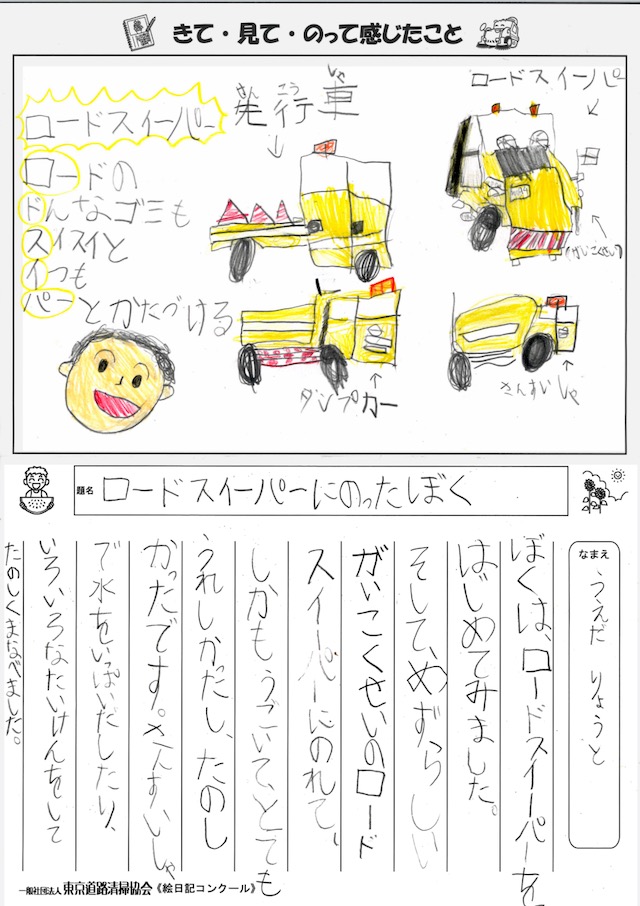 きて・見て・のって感じたこと
ロードスイーパー
ロードの
どんなゴミも
スイスイと
いつも
パーとかたづける
先行車
さん こう しゃ
ロードスイーパー
(がいこくせい)
ダンプカー
さんすいしゃ
題名 ロードスイーパーにのったぼく
なまえ うえだ りょうと
ぼくは、ロードスイーパーを
はじめてみました。
そして、めずらしい
がいこくせいのロード
スイーパーにのれて、
しかもうごいて、とても
うれしかったし、たのし
かったです。さんすいしゃ
で水をいっぱいだしたり、
いろいろなたいけんをして
たのしくまなべました。
一般社団法人 東京道路清掃協会《絵日記コンクール》